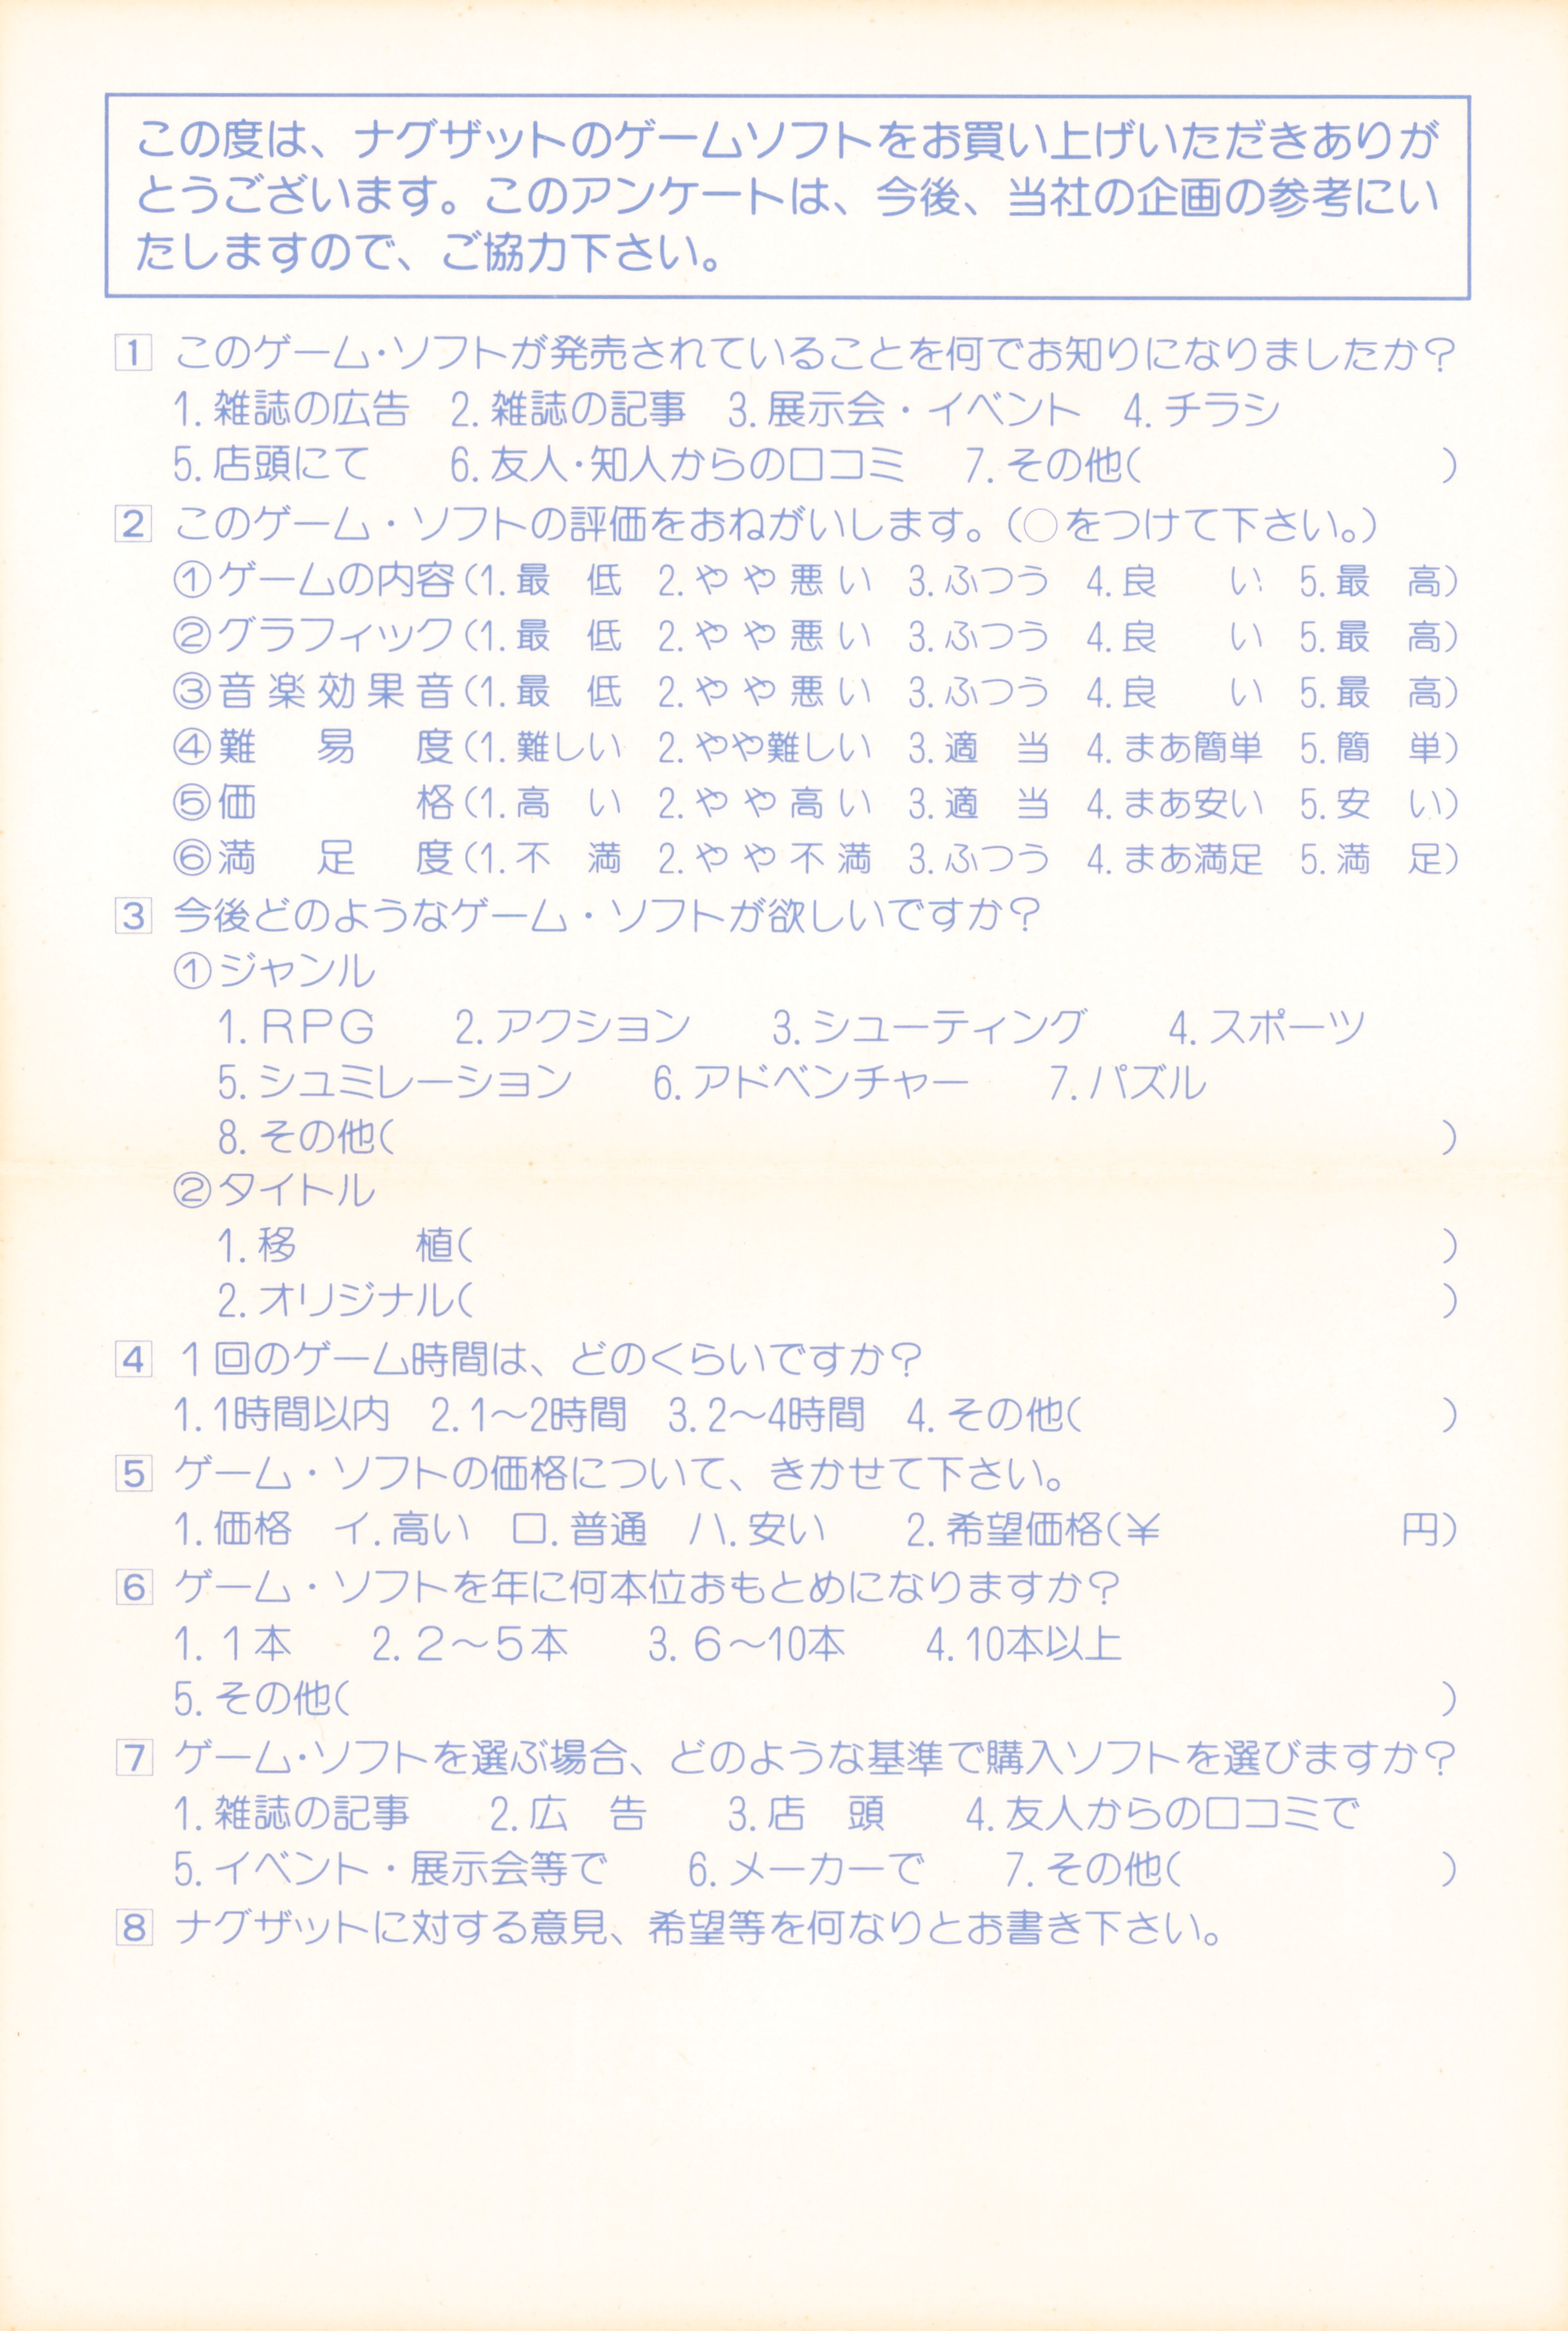 この度は、ナグザットのゲームソフトをお買い上げいただきありが
とうございます。このアンケートは、今後、当社の企画の参考にい
たしますので、ご協力下さい。
1 このゲーム・ソフトが発売されていることを何でお知りになりましたか？
1.雑誌の広告 2.雑誌の記事 3.展示会・イベント 4.チラシ
5.店頭にて 6.友人・知人からの口コミ 7.その他( )
2 このゲーム・ソフトの評価をおねがいします。(○をつけて下さい。)
①ゲームの内容(1.最 低 2.やや悪い 3.ふつう 4.良 い 5.最 高)
②グラフィック(1.最 低 2.やや悪い 3.ふつう 4.良 い 5.最 高)
③音楽効果音(1.最 低 2.やや悪い 3.ふつう 4.良 い 5.最 高)
④難 易 度(1.難しい 2.やや難しい 3.適 当 4.まあ簡単 5.簡 単)
⑤価 格(1.高 い 2.やや高い 3.適 当 4.まあ安い 5.安 い)
⑥満 足 度(1.不 満 2.やや不満 3.ふつう 4.まあ満足 5.満 足)
3 今後どのようなゲーム・ソフトが欲しいですか？
①ジャンル
1.RPG 2.アクション 3.シューティング 4.スポーツ
5.シュミレーション 6.アドベンチャー 7.パズル
8.その他( )
②タイトル
1.移 植( )
2.オリジナル( )
4 1回のゲーム時間は、どのくらいですか？
1.1時間以内 2.1〜2時間 3.2〜4時間 4.その他( )
5 ゲーム・ソフトの価格について、きかせて下さい。
1.価格 イ.高い ロ.普通 ハ.安い 2.希望価格(¥ 円)
6 ゲーム・ソフトを年に何本位おもとめになりますか？
1.1本 2.2〜5本 3.6〜10本 4.10本以上
5.その他( )
7 ゲーム・ソフトを選ぶ場合、どのような基準で購入ソフトを選びますか？
1.雑誌の記事 2.広 告 3.店 頭 4.友人からの口コミで
5.イベント・展示会等で 6.メーカーで 7.その他( )
8 ナグザットに対する意見、希望等を何なりとお書き下さい。